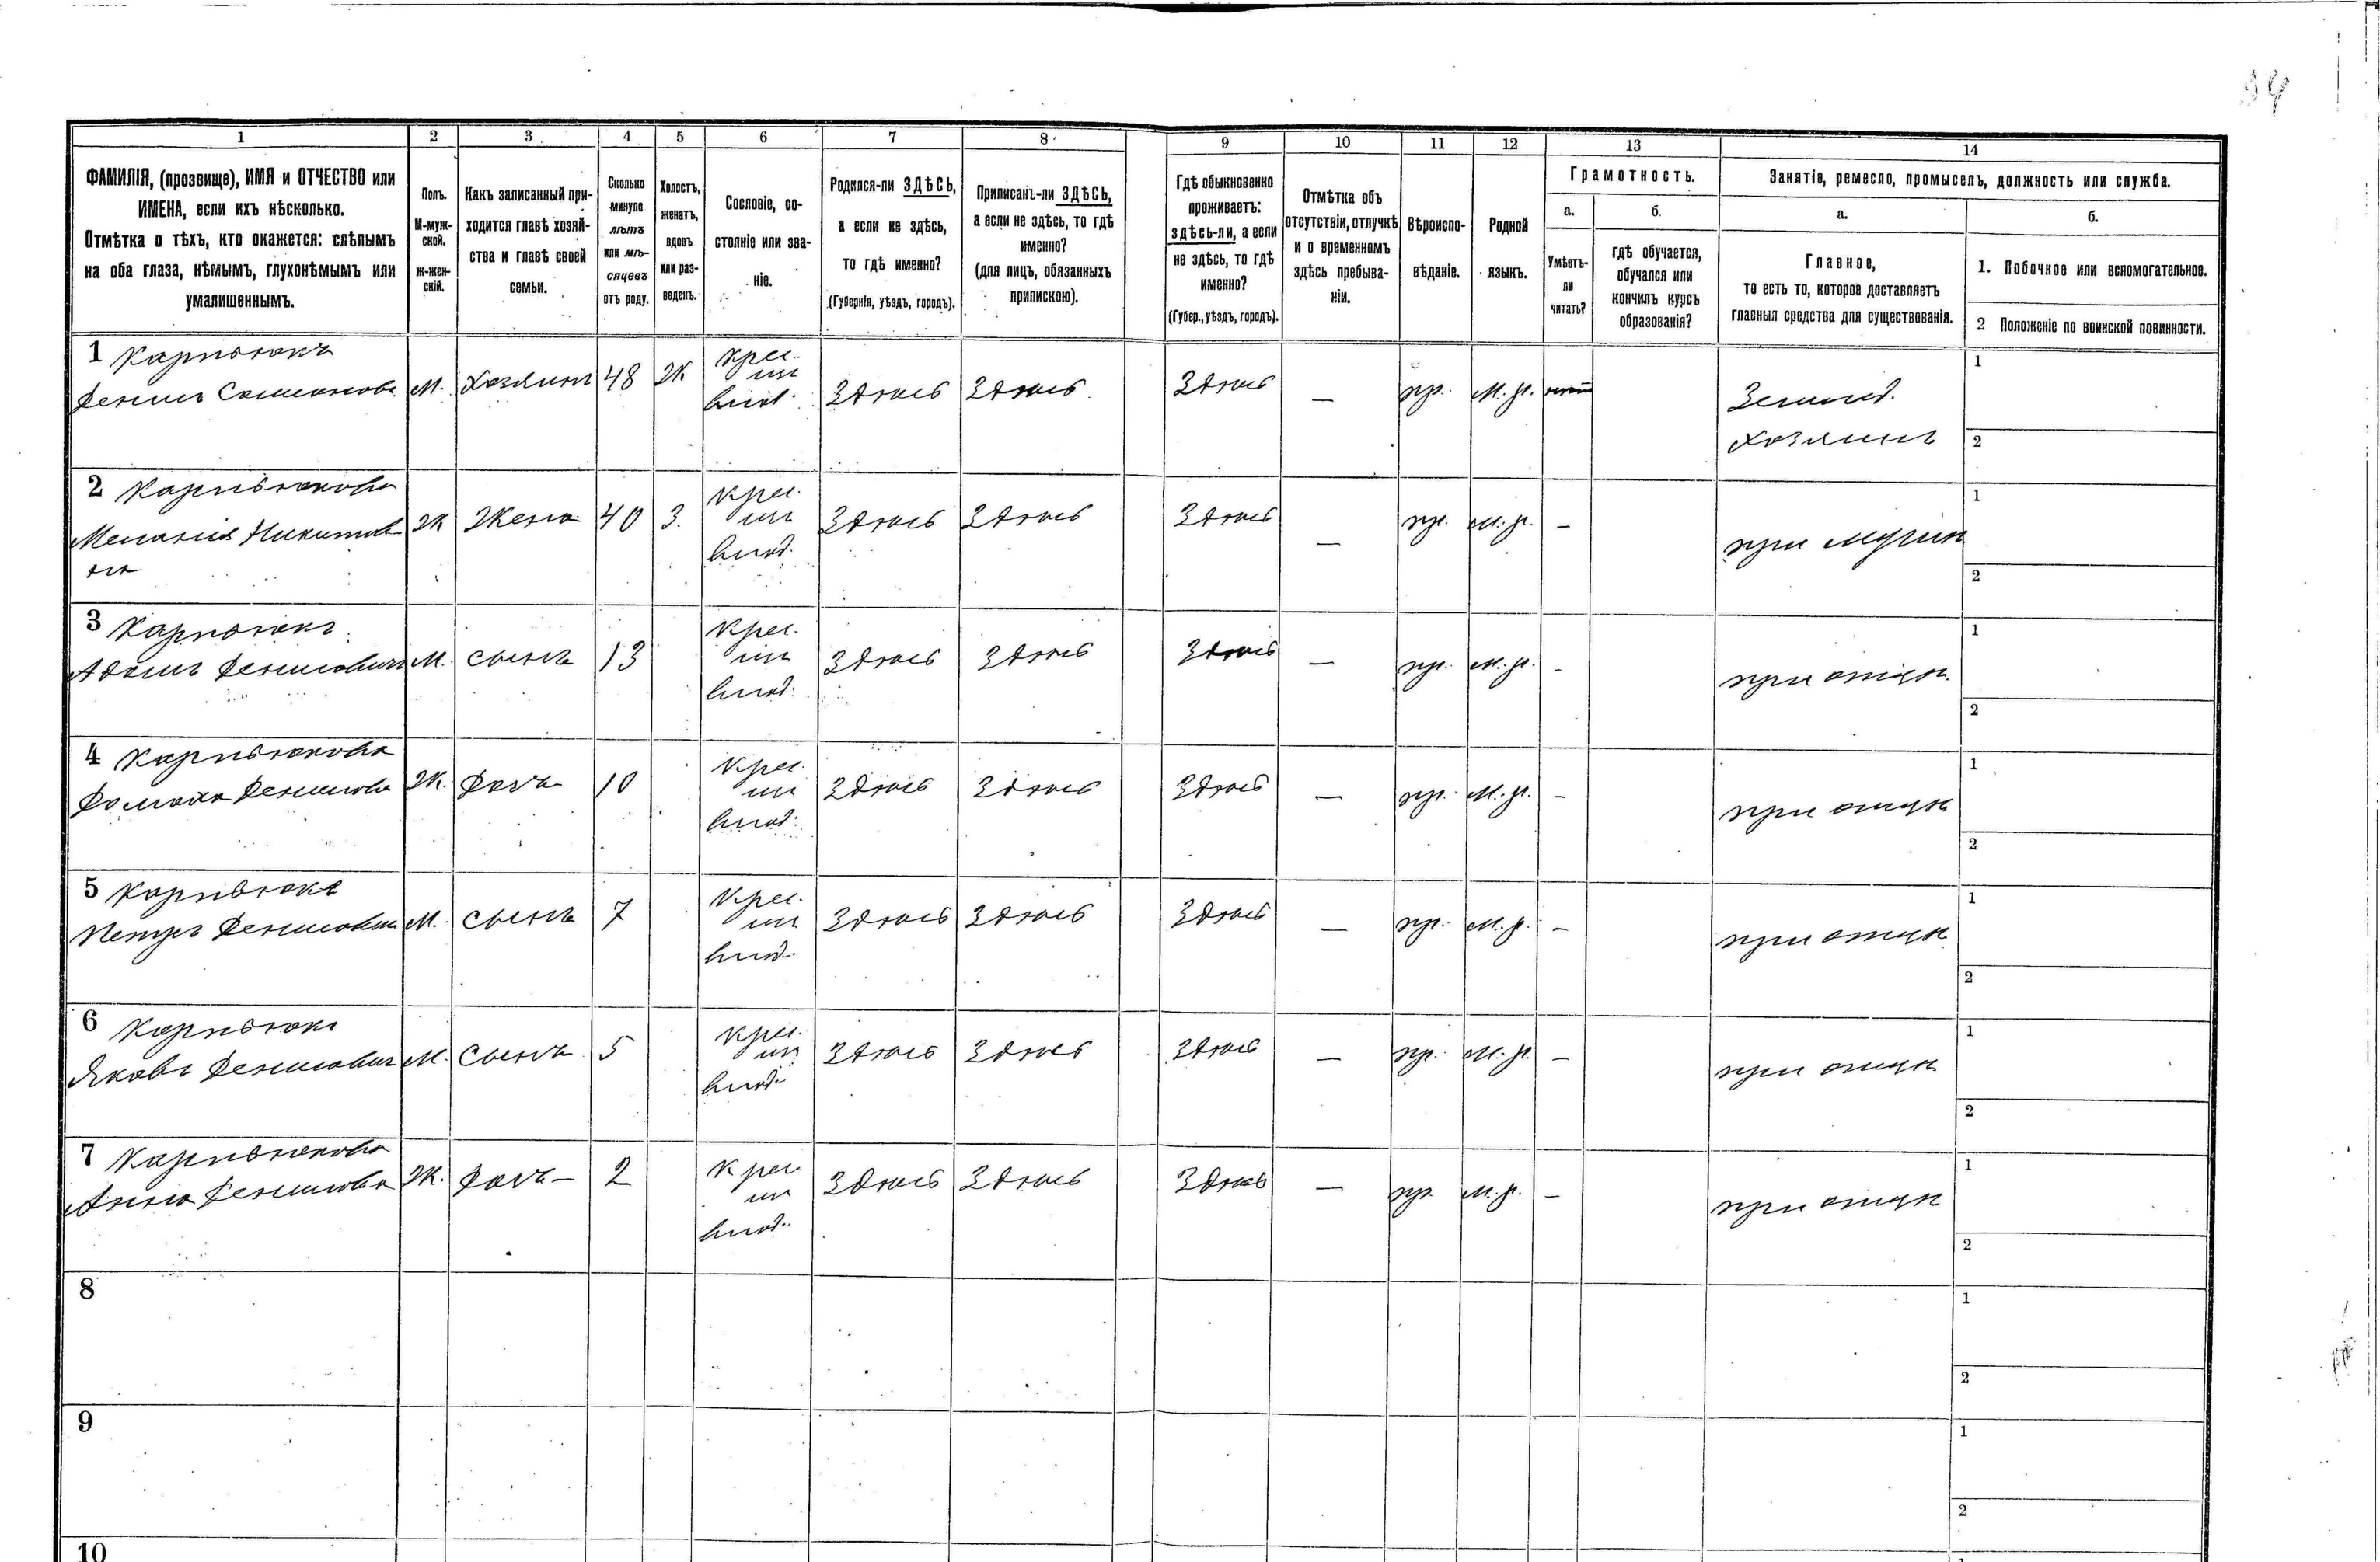 94
1 2 3 4 5 6 7 8 9 10 11 12 13 14
ФАМИЛІЯ, (прозвище), ИМЯ и ОТЧЕСТВО или
ИМЕНА, если ихъ нѣсколько.
Отмѣтка о тѣхъ, кто окажется: слѣпымъ
на оба глаза, нѣмымъ, глухонѣмымъ или
умалишеннымъ.
Полъ.
М-муж-
ской.
ж-жен-
скій.
Какъ записанный при-
ходится главѣ хозяй-
ства и главѣ своей
семьи.
Сколько
минуло
лѣтъ
или мѣ-
сяцевъ
отъ роду.
Холостъ,
женатъ,
вдовъ
или раз-
веденъ.
Сословіе, со-
стояніе или зва-
ніе.
Родился-ли ЗДѢСЬ,
а если не здѣсь,
то гдѣ именно?
(Губернія, уѣздъ, городъ).
Приписанъ-ли ЗДѢСЬ,
а если не здѣсь, то гдѣ
именно?
(для лицъ, обязанныхъ
припискою).
Гдѣ обыкновенно
проживаетъ:
здѣсь-ли, а если
не здѣсь, то гдѣ
именно?
(Губер., уѣздъ, городъ).
Отмѣтка объ
отсутствіи, отлучкѣ
и о временномъ
здѣсь пребыва-
ніи.
Вѣроиспо-
вѣданіе.
Родной
языкъ.
Грамотность.
а.
Умѣетъ-
ли
читать?
б.
гдѣ обучается,
обучался или
кончилъ курсъ
образованія?
Занятіе, ремесло, промыселъ, должность или служба.
а.
Главное,
то есть то, которое доставляетъ
главныя средства для существованія.
б.
1. Побочное или вспомогательное.
2 Положеніе по воинской повинности.
1 Карпюкъ
Денисъ Семионовъ М. Хозяинъ 48 Ж Крес. из влад. Здѣсь Здѣсь Здѣсь — пр. м. р. нѣтъ Землед. Хозяинъ 1 2
2 Карпьюкова
Меланія Никитов на Ж Жена 40 З. Крес. из влад. Здѣсь Здѣсь Здѣсь — пр. м. р. — при мужѣ 1 2
3 Карпюкъ
Адамъ Денисовичъ М. сынъ 13 Крес. из влад. Здѣсь Здѣсь Здѣсь — пр. м. р. - при отцѣ 1 2
4 Карпьюкова
Денисова Ж. дочь 10 Крес. из влад. Здѣсь Здѣсь Здѣсь — пр. м. р. - при отцѣ 1 2
5 Карпьюкъ
Петръ Денисович М. сынъ 7 Крес. из влад. Здѣсь Здѣсь Здѣсь — пр. м. р. — при отцѣ 1 2
6 Карпьюкъ
Яковъ Денисович М. сынъ 5 Крес. из влад. Здѣсь Здѣсь Здѣсь — пр. м. р. — при отцѣ 1 2
7 Карпьюкова
Анна Денисова Ж. дочь — 2 Крес. из влад. Здѣсь Здѣсь Здѣсь — пр. м. р. — при отцѣ 1 2
8 1 2
9 1 2
10